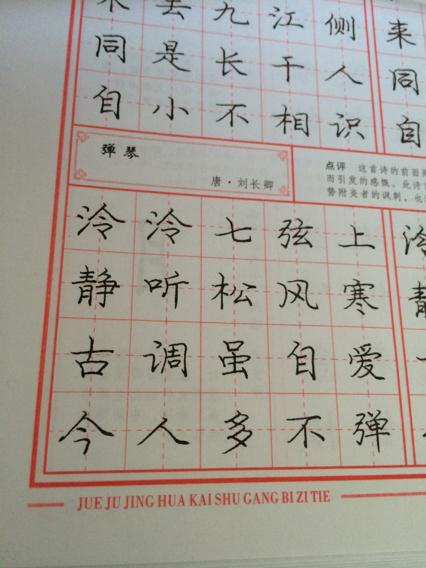 来去九江侧 来
同是长干人 同
自小不相识 自
弹琴
唐·刘长卿
点评 这首诗的前面
而引发的感慨。此诗
势附炎者的讽刺。也
泠泠七弦上
静听松风寒
古调虽自爱
今人多不弹
JUE JU JING HUA KAI SHU GANG BI ZI TIE